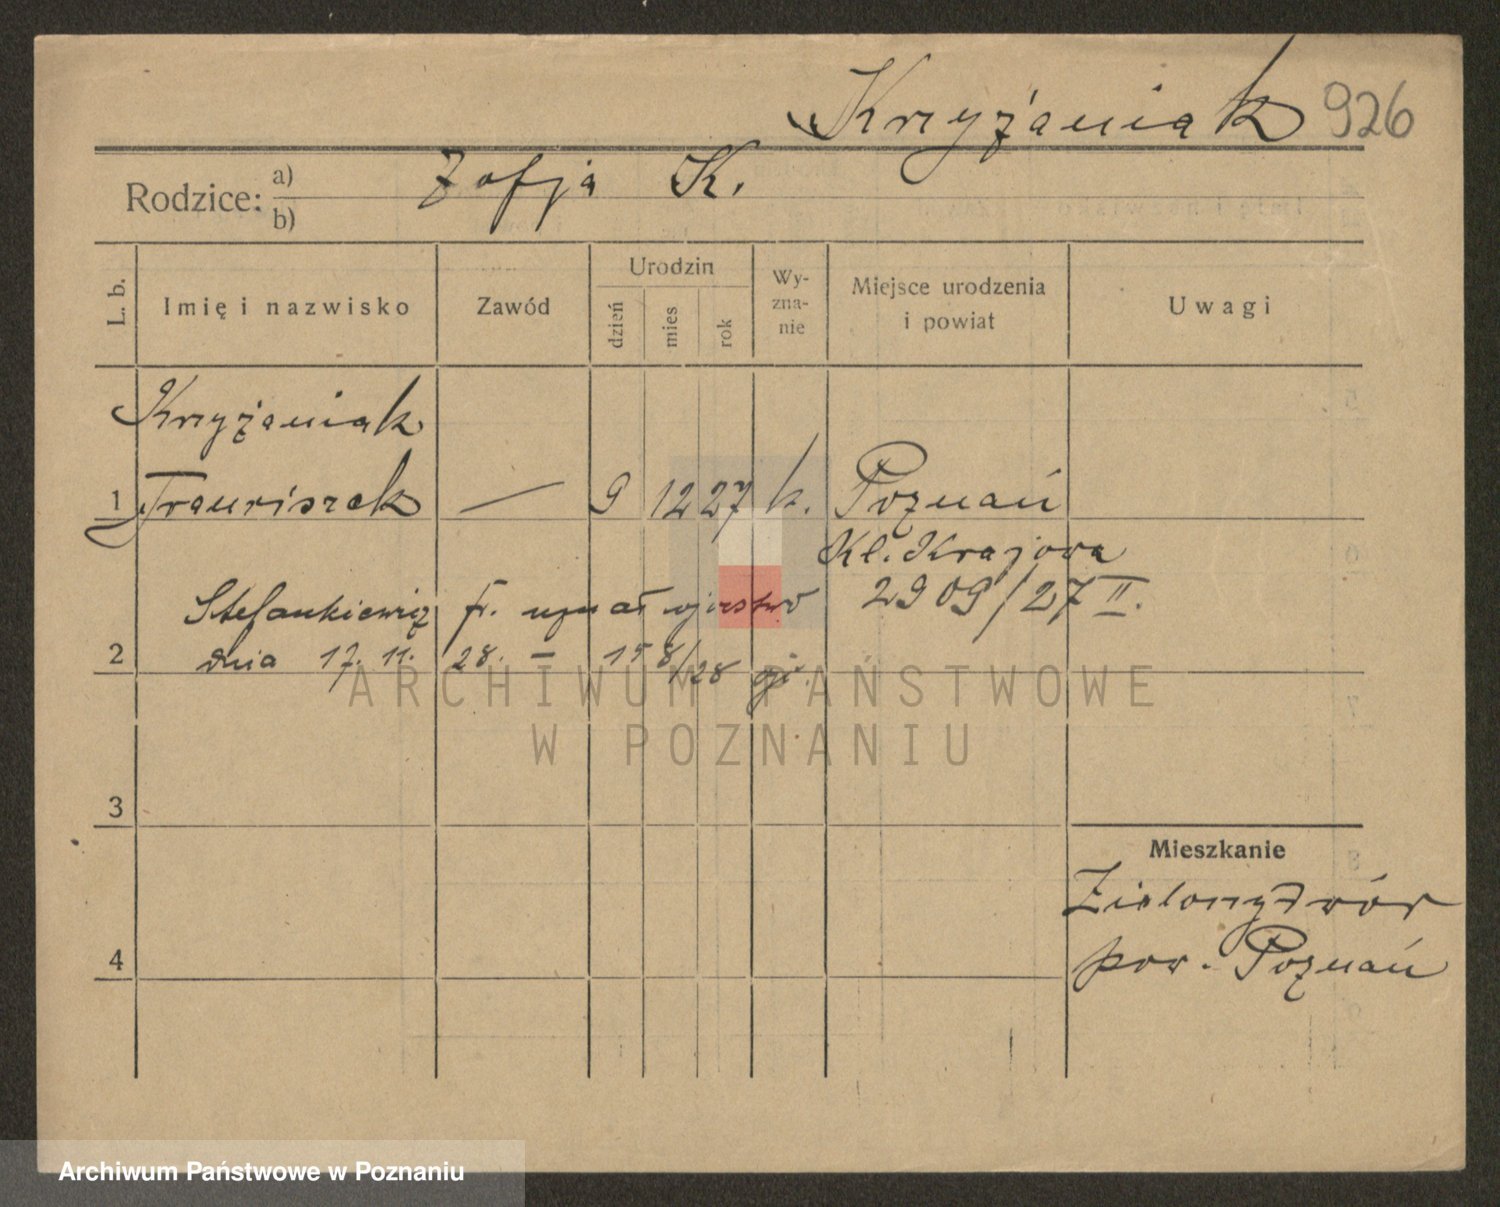 Krzyżaniak 926
Rodzice: a) Zofja K.
b)
L. b. Imię i nazwisko Zawód Urodzin dzień mies rok Wy-zna-nie Miejsce urodzenia i powiat Uwagi
Krzyżaniak
1 Franciszek — 9 12 27 k. Poznań
Kl. Krajowa
Stefankiewicz fr. uznał ojcostwo 2909/27 II.
2 dnia 17. 11. 28. – 158/28 oj.
ARCHIWUM PAŃSTWOWE
W POZNANIU
3
Mieszkanie
Zielonydwór
4 pow. Poznań
Archiwum Państwowe w Poznaniu